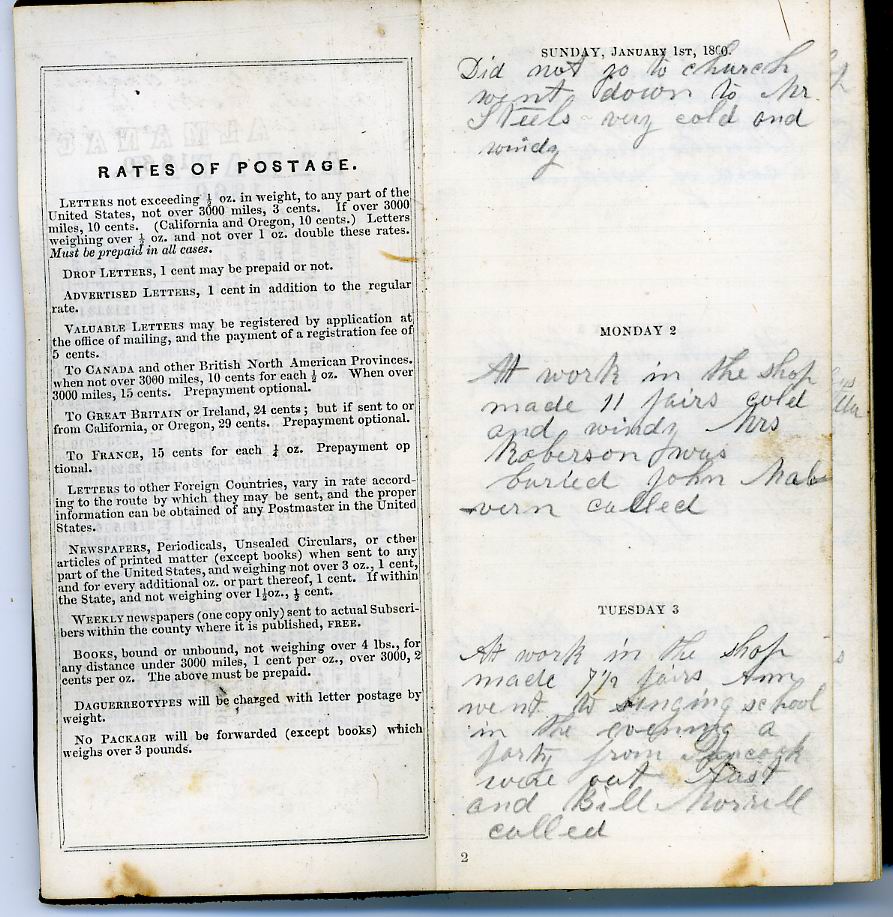 RATES OF POSTAGE.
LETTERS not exceeding ½ oz. in weight, to any part of the
United States, not over 3000 miles, 3 cents. If over 3000
miles, 10 cents. (California and Oregon, 10 cents.) Letters
weighing over ½ oz. and not over 1 oz. double these rates.
Must be prepaid in all cases.
DROP LETTERS, 1 cent may be prepaid or not.
ADVERTISED LETTERS, 1 cent in addition to the regular
rate.
VALUABLE LETTERS may be registered by application at
the office of mailing, and the payment of a registration fee of
5 cents.
To CANADA and other British North American Provinces.
when not over 3000 miles, 10 cents for each ½ oz. When over
3000 miles, 15 cents. Prepayment optional.
To GREAT BRITAIN or Ireland, 24 cents; but if sent to or
from California, or Oregon, 29 cents. Prepayment optional.
To FRANCE, 15 cents for each ¼ oz. Prepayment op
tional.
LETTERS to other Foreign Countries, vary in rate accord-
ing to the route by which they may be sent, and the proper
information can be obtained of any Postmaster in the United
States.
NEWSPAPERS, Periodicals, Unsealed Circulars, or other
articles of printed matter (except books) when sent to any
part of the United States, and weighing not over 3 oz., 1 cent,
and for every additional oz. or part thereof, 1 cent. If within
the State, and not weighing over 1½oz., ½ cent.
WEEKLY newspapers (one copy only) sent to actual Subscri-
bers within the county where it is published, FREE.
BOOKS, bound or unbound, not weighing over 4 lbs., for
any distance under 3000 miles, 1 cent per oz., over 3000, 2
cents per oz. The above must be prepaid.
DAGUERREOTYPES will be charged with letter postage by
weight.
No PACKAGE will be forwarded (except books) which
weighs over 3 pounds.
SUNDAY, JANUARY 1ST, 1860.
Did not go to church
went down to Mr
Steels very cold and
windy
MONDAY 2
At work in the shop
made 11 pairs cold
and windy Mrs
Roberson was
buried John Mal
vern called
TUESDAY 3
At work in the shop
made 7½ pairs Ann
went to singing school
in the evening a
party from Hancock
were out
and Bill Morrill
called
2